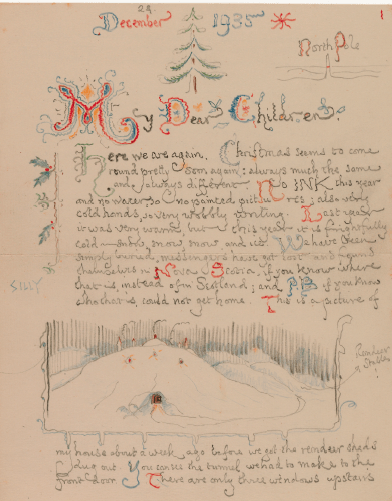 1
December 24 1935
North Pole
My Dear Children.
Here we are again. Christmas seems to come
round pretty soon again: always much the same
and always different. No INK this year
and no water so no painted pictures; also very
cold hands, so very wobbly writing. Last year
it was very warm, but this year it is frightfully
cold — snow snow snow and ice. We have been
simply buried, messengers have got lost and found
themselves in Nova Scotia, if you know where
that is, instead of in Scotland; and PB, if you know
SILLY
who that is, could not get home. This is a picture of
Reindeer
Stables
my house about a week ago before we got the reindeer sheds
dug out. You can see the tunnel we had to make to the
front door. There are only three windows upstairs